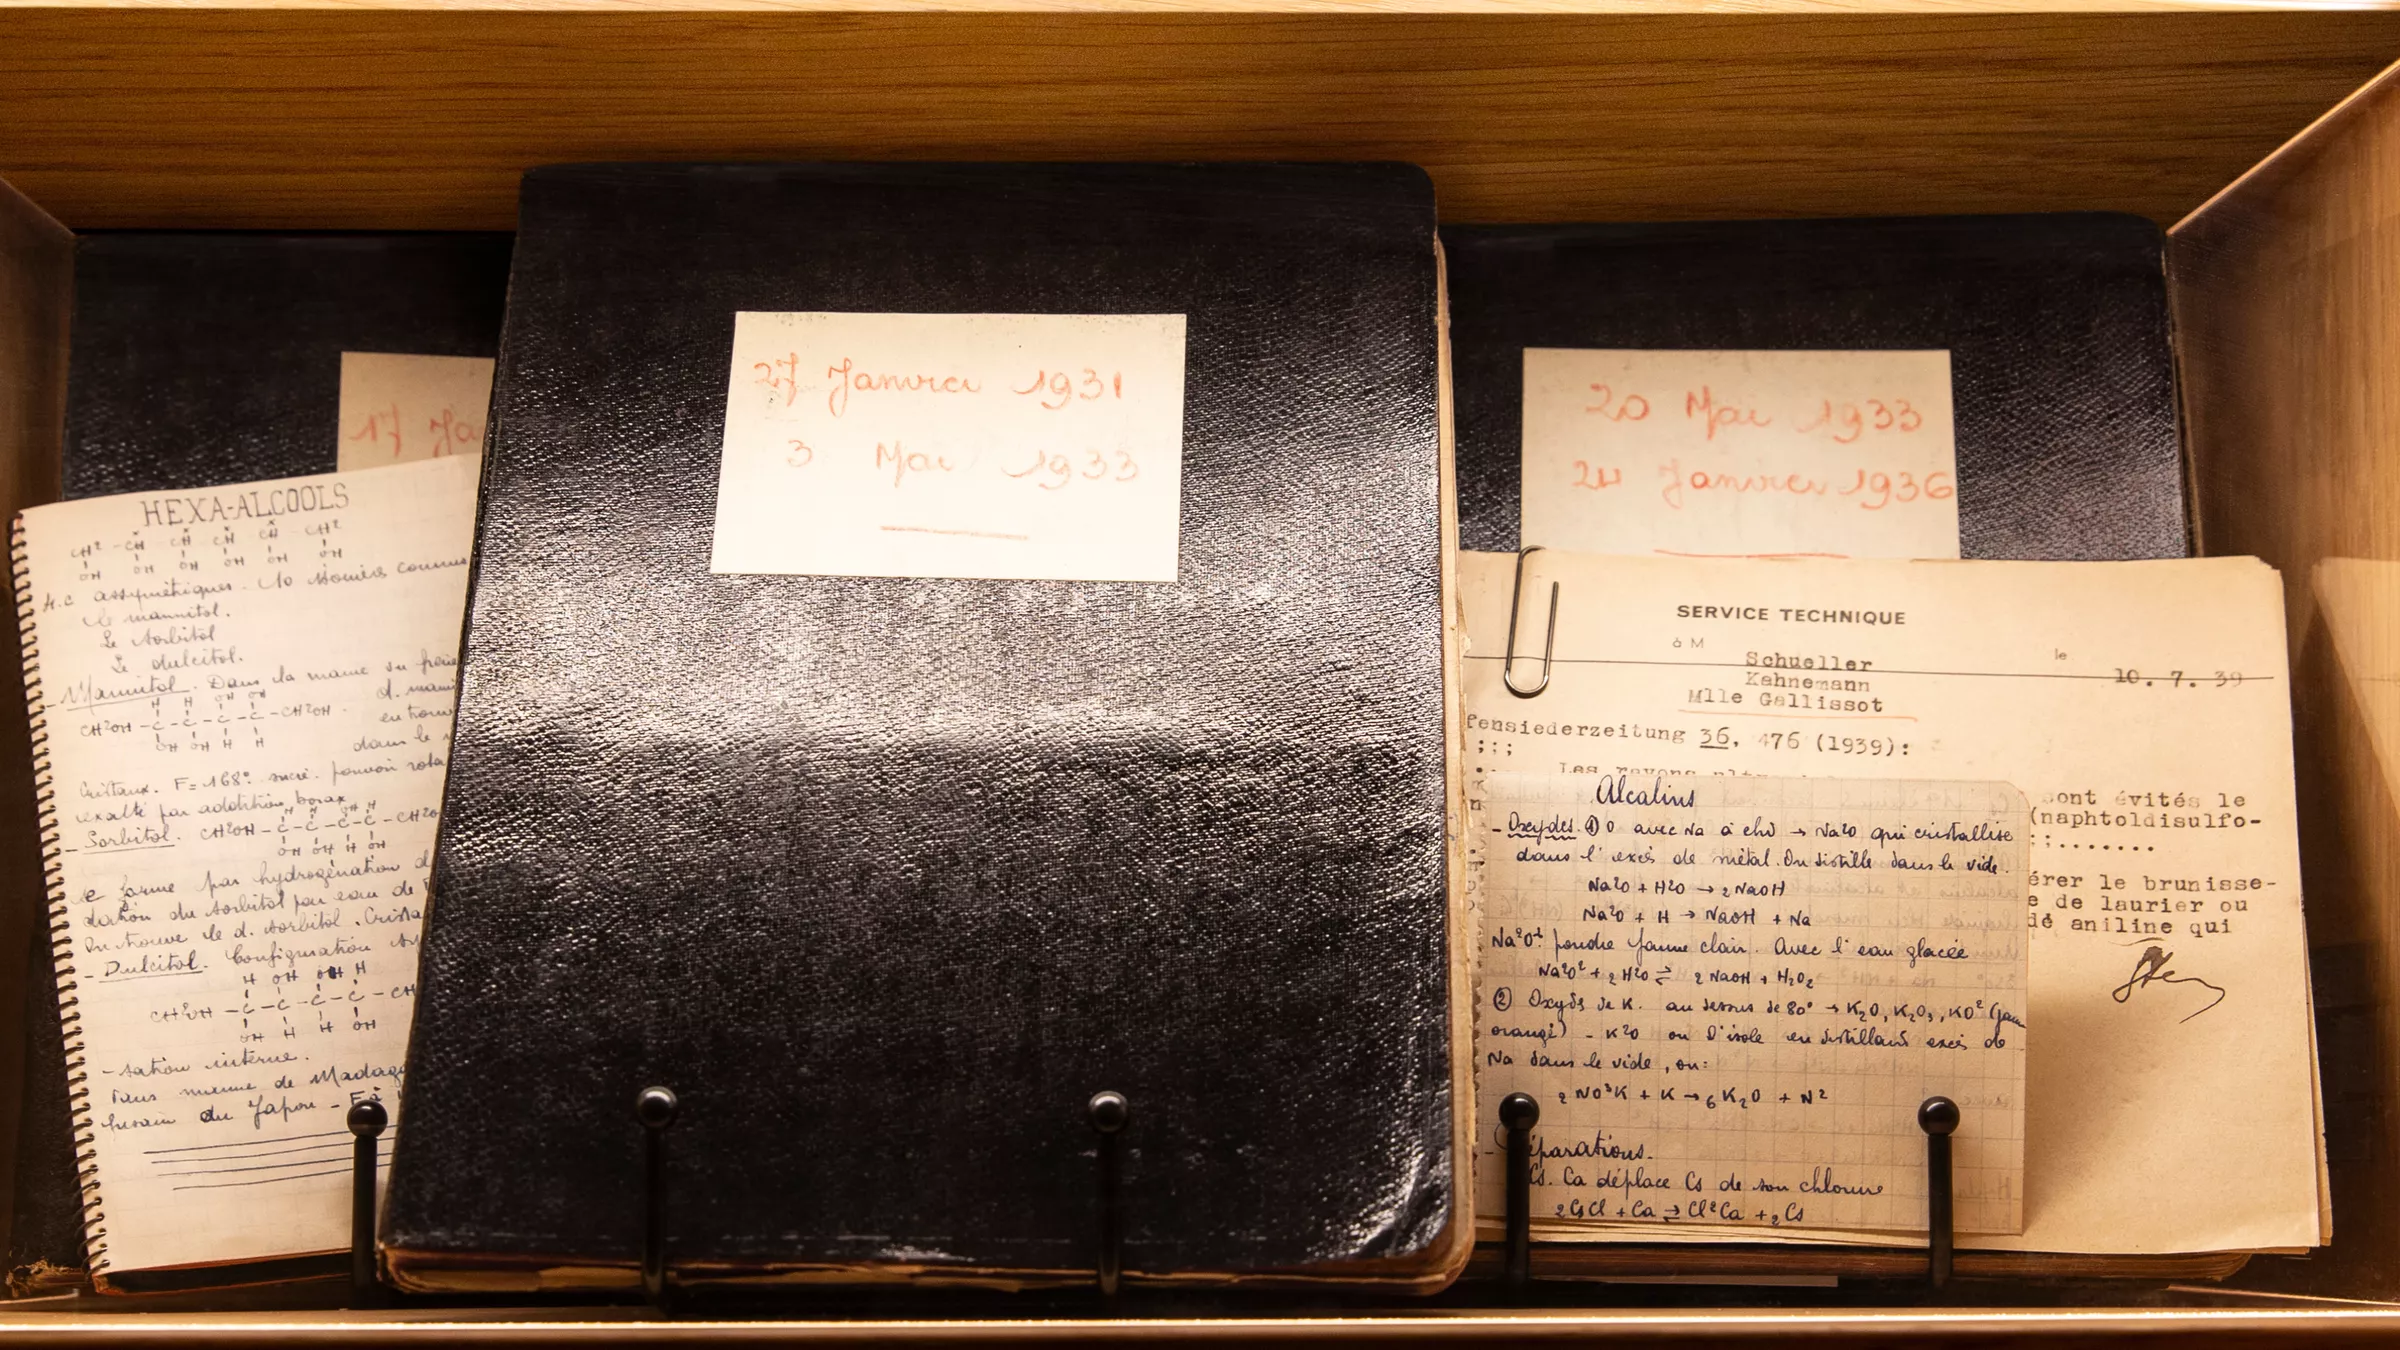 17 Ja
HEXA-ALCOOLS
CH² - CH - CH - CH - CH - CH²
OH OH OH OH OH OH
4.C assymétiques. 10 stomères connus
le mannitol.
Le sorbitol
Le dulcitol.
- Mannitol. Dans la manne du
H H OH OH
CH²OH - C - C - C - C - CH²OH.
OH OH H H
dans le
Cristaux. F = 168° sucré. pouvoir rota
exalté par addition borax
- Sorbitol. CH²OH - C - C - C - C - CH²O
OH OH H OH
se forme par hydrogénation d
dation du sorbitol par eau de
On trouve le d. sorbitol. Crista
- Dulcitol. Configuration
H OH OH H
CH²OH - C - C - C - C - CH
OH H H OH
- sation interne.
Dans manne de Madag
fusain du Japon - F à
27 Janvier 1931
3 Mai 1933
20 Mai 1933
24 Janvier 1936
SERVICE TECHNIQUE
à M
Schueller
le
10. 7. 39
Kahnemann
Mlle Gallissot
fensiederzeitung 36, 476 (1939):
;;;
Les rayons
sont évités le
(naphtoldisulfo-
;.......
érer le brunisse-
e de laurier ou
dé aniline qui
Alcalins
- Oxydes. ① O avec Na à chd → Na²O qui cristallise
dans l'excès de métal. On distille dans le vide.
Na²O + H²O → 2 NaOH
Na²O + H → NaOH + Na
Na²O²: poudre jaune clair. Avec l'eau glacée
Na²O² + 2 H²O ⇄ 2 NaOH + H₂O₂
② Oxyds de K. au dessus de 80° → K₂O, K₂O₃, KO² (jaun
orangé) - K²O on l'isole en distillant excès de
Na dans le vide, ou:
2 NO³K + K → 6 K₂O + N²
éparations.
Cs. Ca déplace Cs de son chlorure
2 CsCl + Ca ⇄ Cl²Ca + 2 Cs